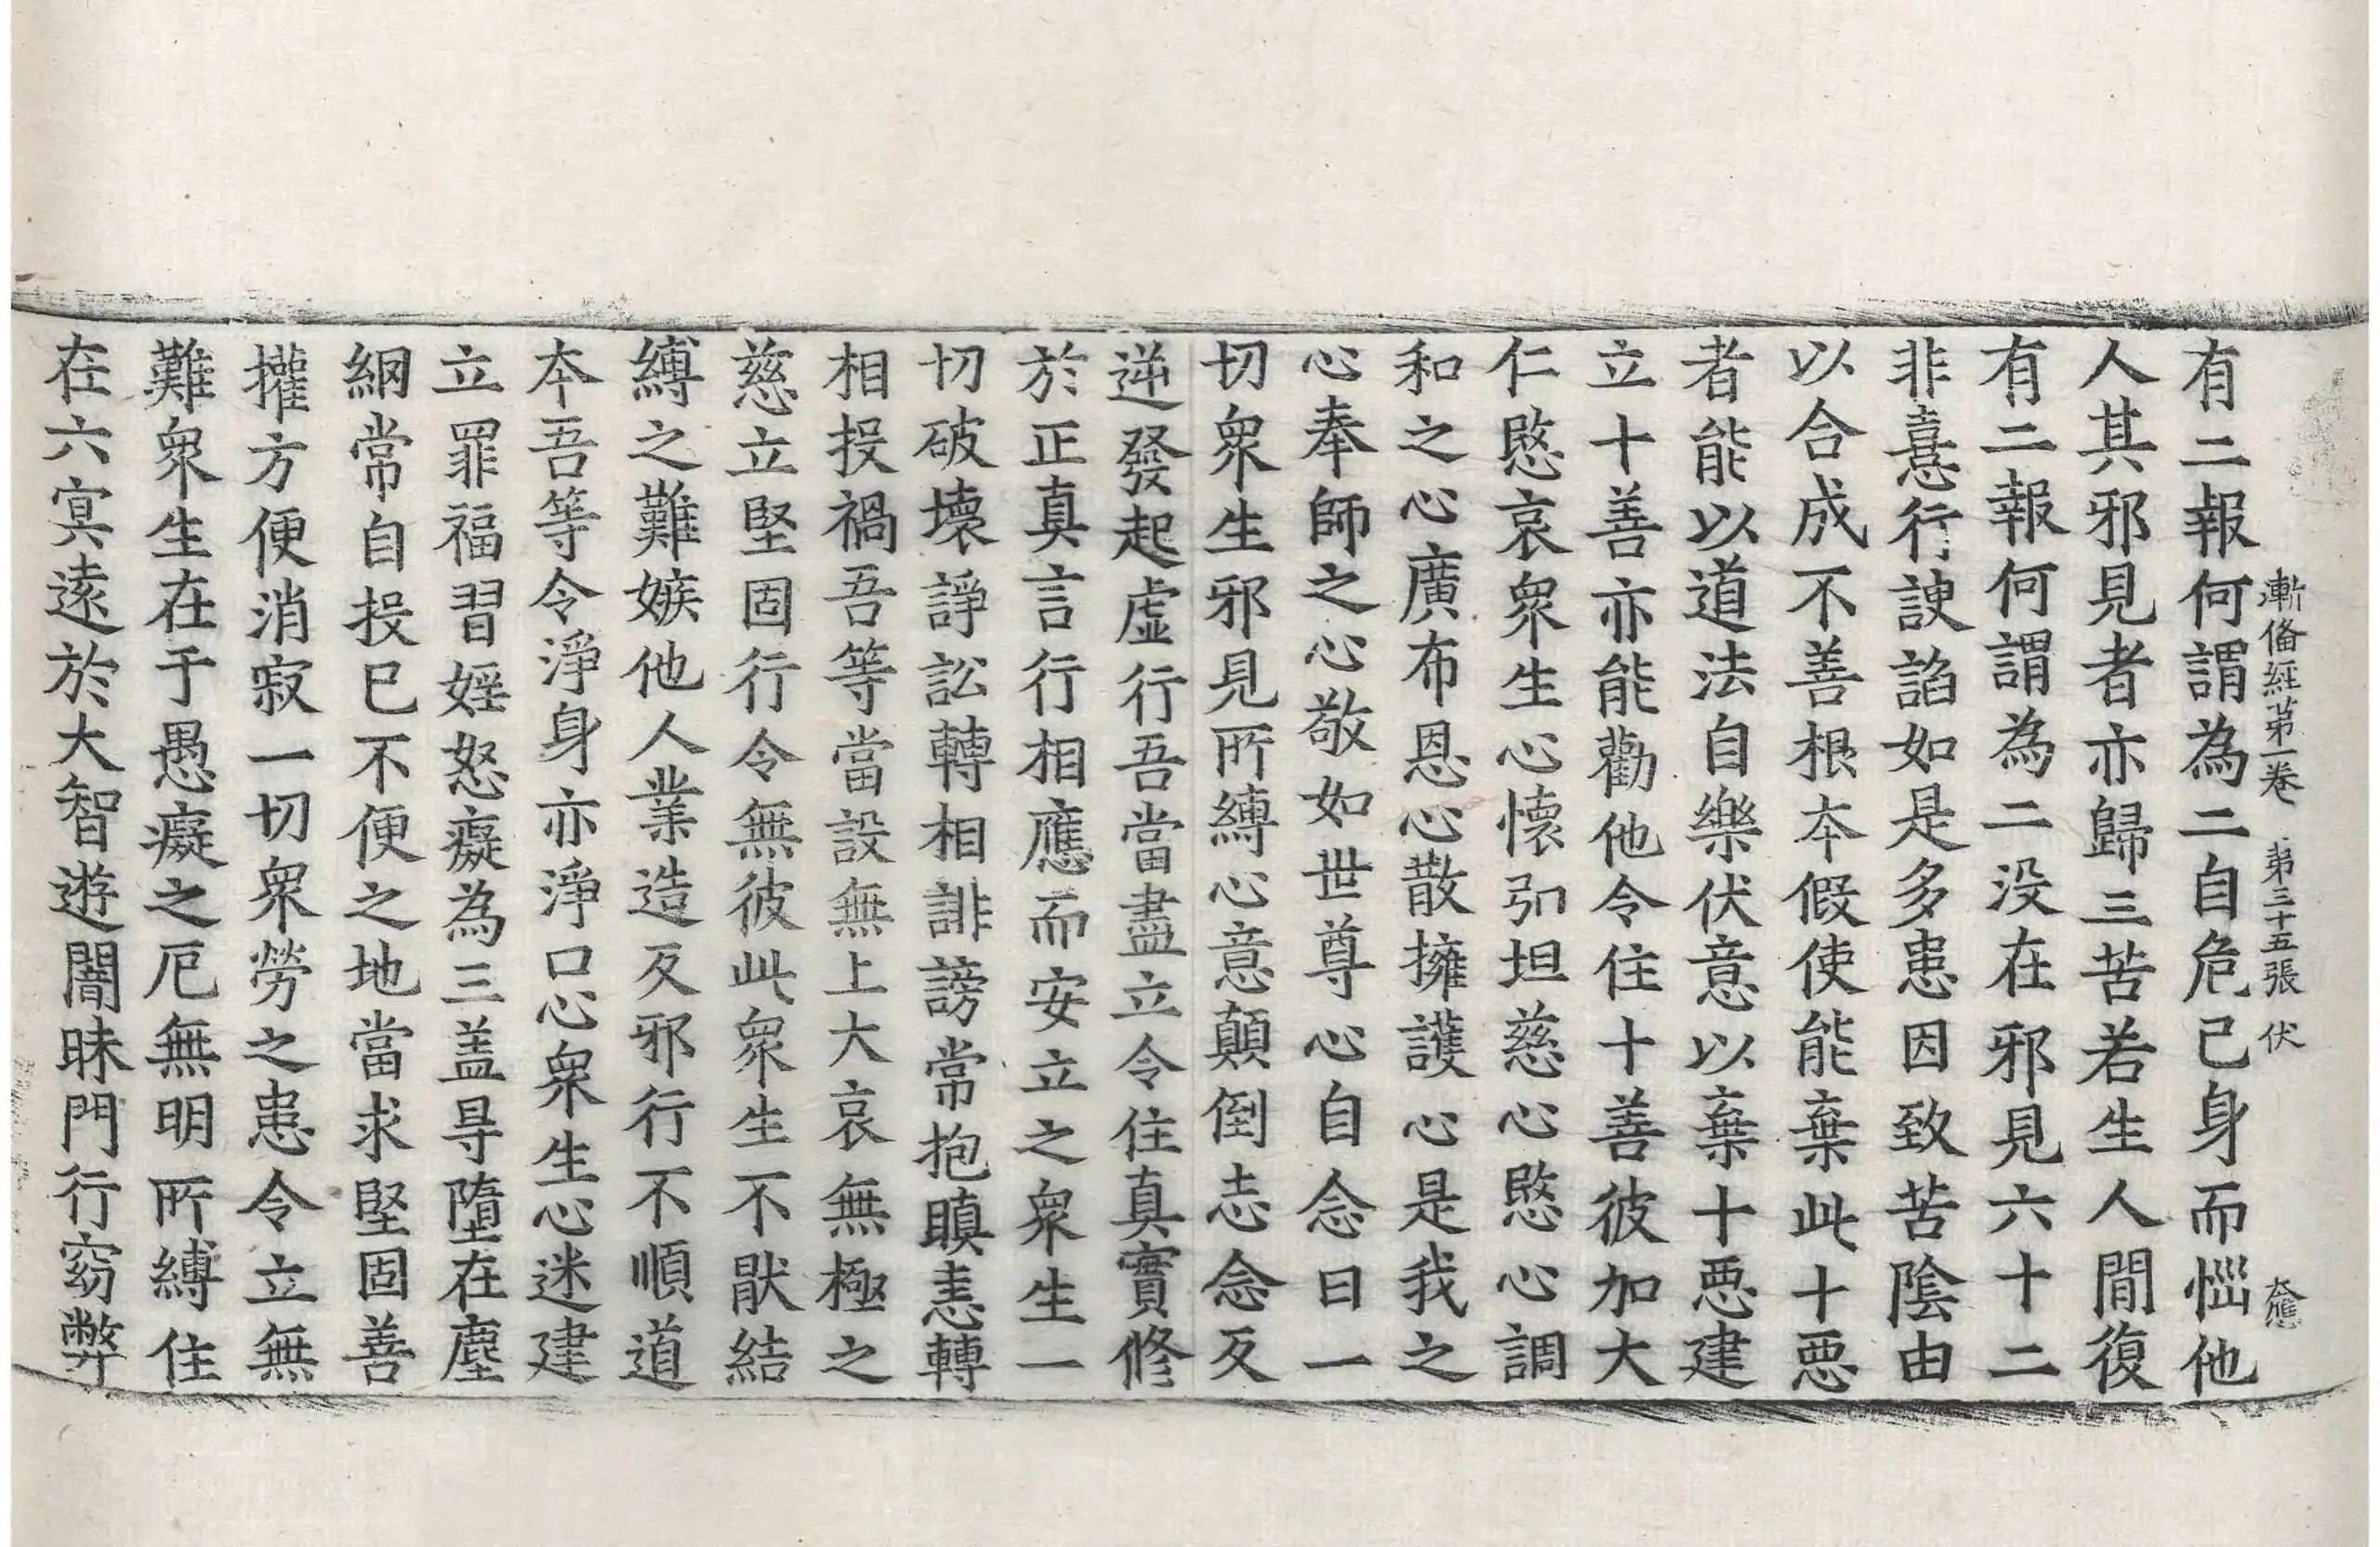 漸備經第一卷 第三十五張 伏 大應
有二報何謂為二自危已身而惱他
人其邪見者亦歸三苦若生人間復
有二報何謂為二没在邪見六十二
非憙行諛諂如是多患因致苦陰由
以合成不善根本假使能棄此十惡
者能以道法自樂伏意以棄十惡建
立十善亦能勸他令住十善彼加大
仁愍哀衆生心懷弘坦慈心愍心調
和之心廣布恩心散擁護心是我之
心奉師之心敬如世尊心自念曰一
切衆生邪見所縛心意顛倒志念反
逆發起虛行吾當盡立令住真實修
於正真言行相應而安立之衆生一
切破壞諍訟轉相誹謗常抱瞋恚轉
相投禍吾等當設無上大哀無極之
慈立堅固行令無彼此衆生不猒結
縛之難嫉他人業造反邪行不順道
本吾等令淨身亦淨口心衆生心迷建
立罪福習婬怒癡為三盖㝵墮在塵
網常自投已不便之地當求堅固善
權方便消寂一切衆勞之患令立無
難衆生在于愚癡之厄無明所縛住
在六冥遠於大智遊闇昧門行窈弊